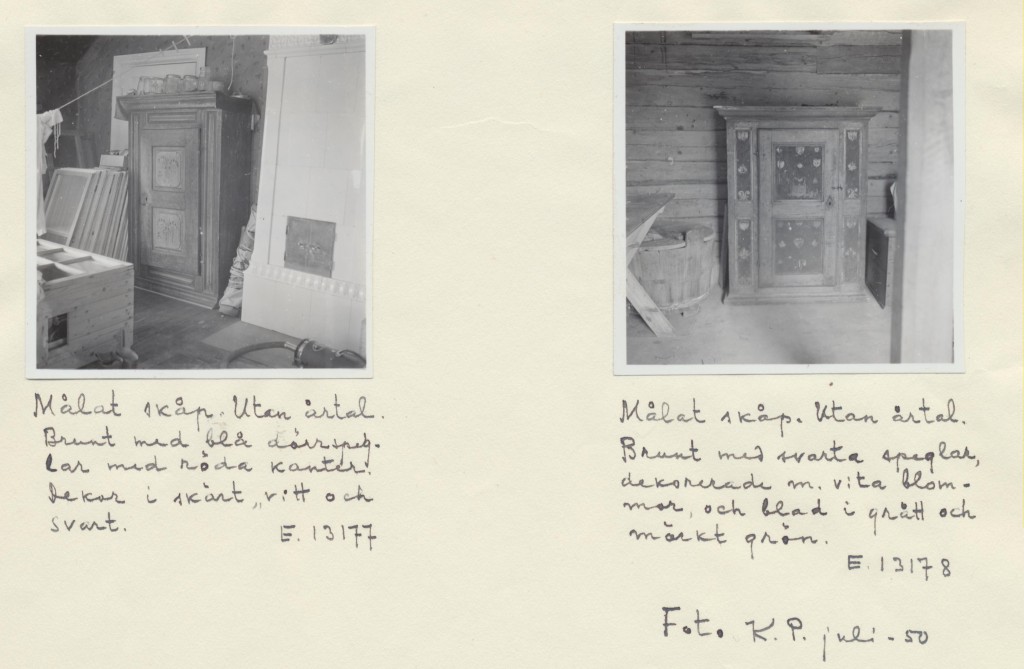 Målat skåp. Utan årtal.
Brunt med blå dörrspeg-
lar med röda kanter.
Dekor i skärt, vitt och
svart.
E. 13177
Målat skåp. Utan årtal.
Brunt med svarta speglar,
dekorerade m. vita blom-
mor, och blad i grått och
mörkt grön.
E. 13178
Foto. K. P. juli - 50